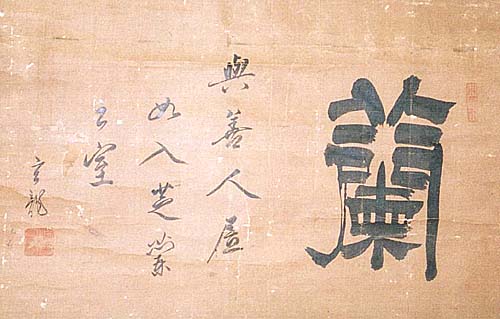 蘭
與善人居
如入芝蘭
之室
玄龍